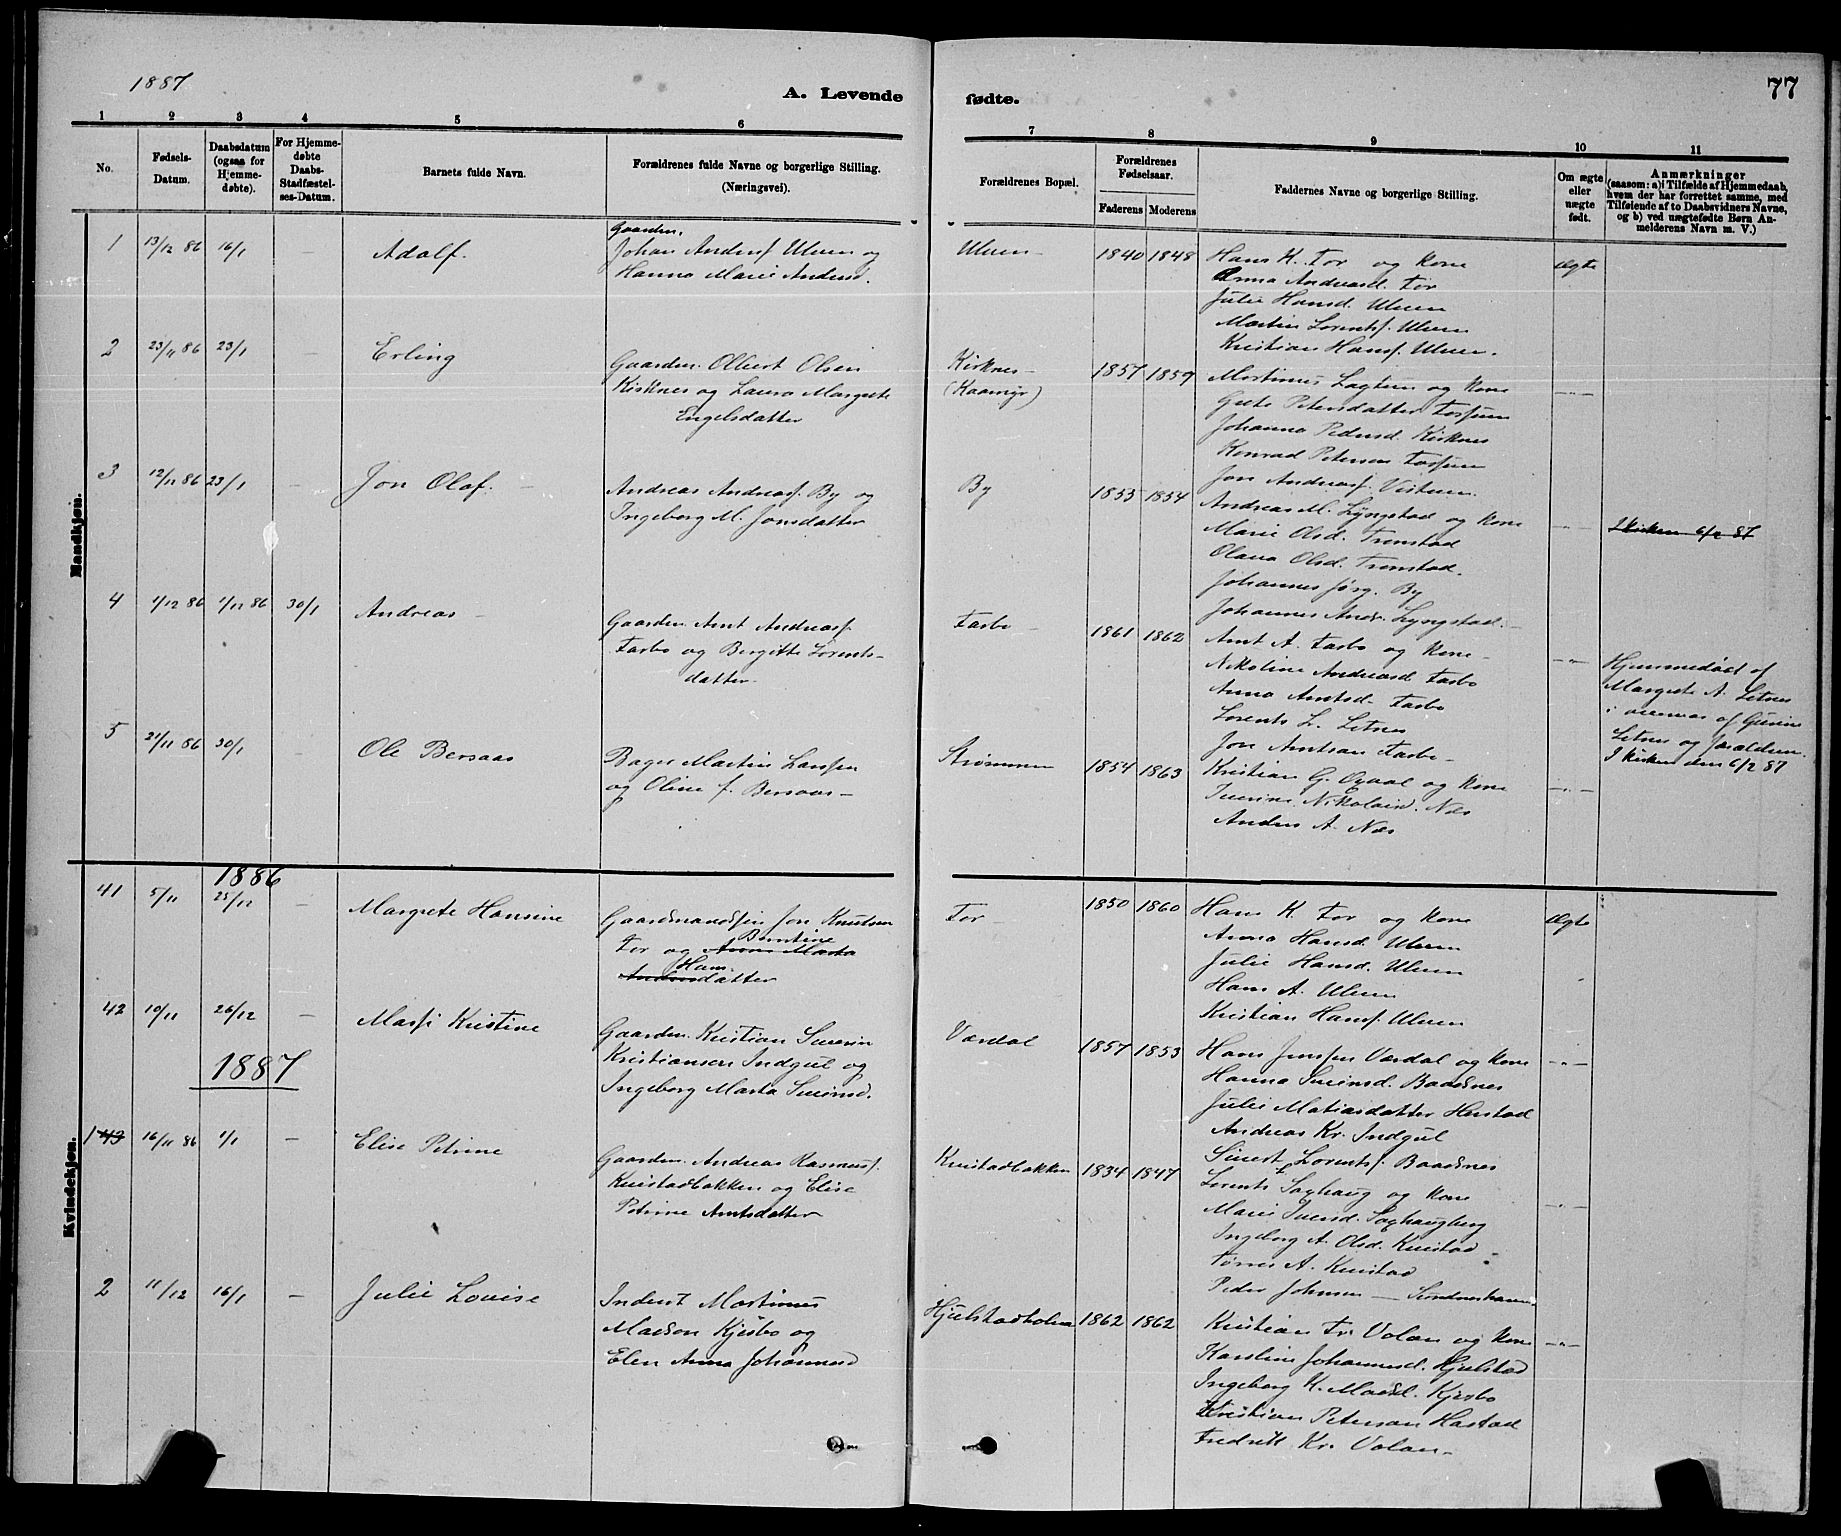 1887
A. Levende
fødte.
77
1 2 3 4 5 6
7 8 9 10 11
No.
Fødsels-Datum.
Daabsdatum (ogsaa for Hjemme-døbte).
For Hjemme-døbte Daabs-Stadfæstel-ses-Datum.
Barnets fulde Navn.
Forældrenes fulde Navne og borgerlige Stilling. (Næringsvei).
Forældrenes Bopæl.
Forældrenes Fødselsaar.
Faderens
Moderens
Faddernes Navne og borgerlige Stilling.
Om ægte eller uægte født.
Anmærkninger
(saasom: a) i Tilfælde af Hjemmedaab, hvem der har forrettet samme, med Tilføiende af to Daabsvidners Navne, og b) ved uægtefødte Børn Anmelderens Navn m. V.)
Mandkjøn.
1 13/12 86 16/1 — Adolf.
Gaardm.
Johan Andersf. Ulven og
Hanna Marie Andersd.
Ulven 1840 1848
Hans K. For og Kone
Anna Andreasd. For
Julie Hansd. Ulven
Martin Lorentsf. Ulven
Kristian Hansf. Ulven.
Ægte
2 23/11 86 23/1 — Erling
Gaardm. Albert Olsen
Kirknes og Laura Margrete
Engelsdatter
Kirknes
(Kaamyr)
1857 1859
Martinus Lagtun og Kone
Grete Petersdatter Fossum
Johanna Pedersd. Kirknes
Konrad Petersen Fossum
Jon Andreasf. Vistven.
—"—
3 12/11 86 23/1 — Jon Olaf.
Andreas Andreasf. By og
Ingeborg M. Jonsdatter
By 1853 1854
Andreas M. Lyngstad og Kone
Marie Olsd. Tronstad
Olava Olsd. Tronstad.
Johannes Jørg. By
Johannes Andr. Lyngstad.
—"—
I kirken 6/2 87
4 1/12 86 1/12 86 30/1 Andreas
Gaardm. Arnt Andreasf.
Farbo og Bergitte Lorents-
datter
Farbo 1861 1862
Arnt A. Farbo og Kone
Nikoline Andreasd Farbo
Anna Arntsd. Farbo
Lorents L. Letnes
Jon Arntsen Farbo
—"—
Hjemmedøbt af
Margrete A. Letnes
i overvær af
Letnes og forældrene.
I kirken den 6/2 87
5 21/11 86 30/1 — Ole Bersaas
Bager Martin Larsen
og Oline f. Bersaas
Strømmen 1854 1863
Kristian G. Oxaal og Kone
Iverine Nikolaisd. Næs
Anders A. Næs
—"—
Kvindekjøn.
1886
41 5/11 25/12 — Margrete Hansine
Gaardmandssøn Jon Knutsen
For og Anna Marta
Berntine
Hans
Andersdatter
For 1850 1860
Hans K. For og Kone
Anna Hansd. Ulven
Julie Hansd. Ulven
Hans A. Ulven
Kristian Hansf. Ulven
Ægte
42 10/11 26/12 — Massi Kristine
Gaardm. Kristian Severin
Kristiansen Indgul og
Ingeborg Marta
Værdal 1857 1853
Hans Jenssen Værdal og Kone
Hanna Baadsnes
Julie Matiasdatter Hustad
Andreas Kr. Indgul
Sivert Lorentsf. Baadsnes
—"—
1887
1 43 16/11 86 1/1 — Elise Petrine
Gaardm. Andreas Rasmusf.
Kvistadbakken og Elise
Petrine Arntsdatter
Kvistadbakken 1834 1847
Lorents Saxhaug og Kone
Marie Iversd. Saxhaugberg
Ingeborg A. Olsd. Kvistad
Tørres A. Kvistad
Peder Johnsen —
—"—
2 11/12 16/1 — Julie Lovise
Inderst Martinus
Madsen Kjesbo og
Elen Anna Johannesd
Hjulstadholm 1862 1862
Kristian Fr. Volan og Kone
Karoline Johannesd. Hjulstad
Ingeborg K. Madsd. Kjesbo
Kristian Petersen Hastad
Fredrik Kr. Volan
—"—